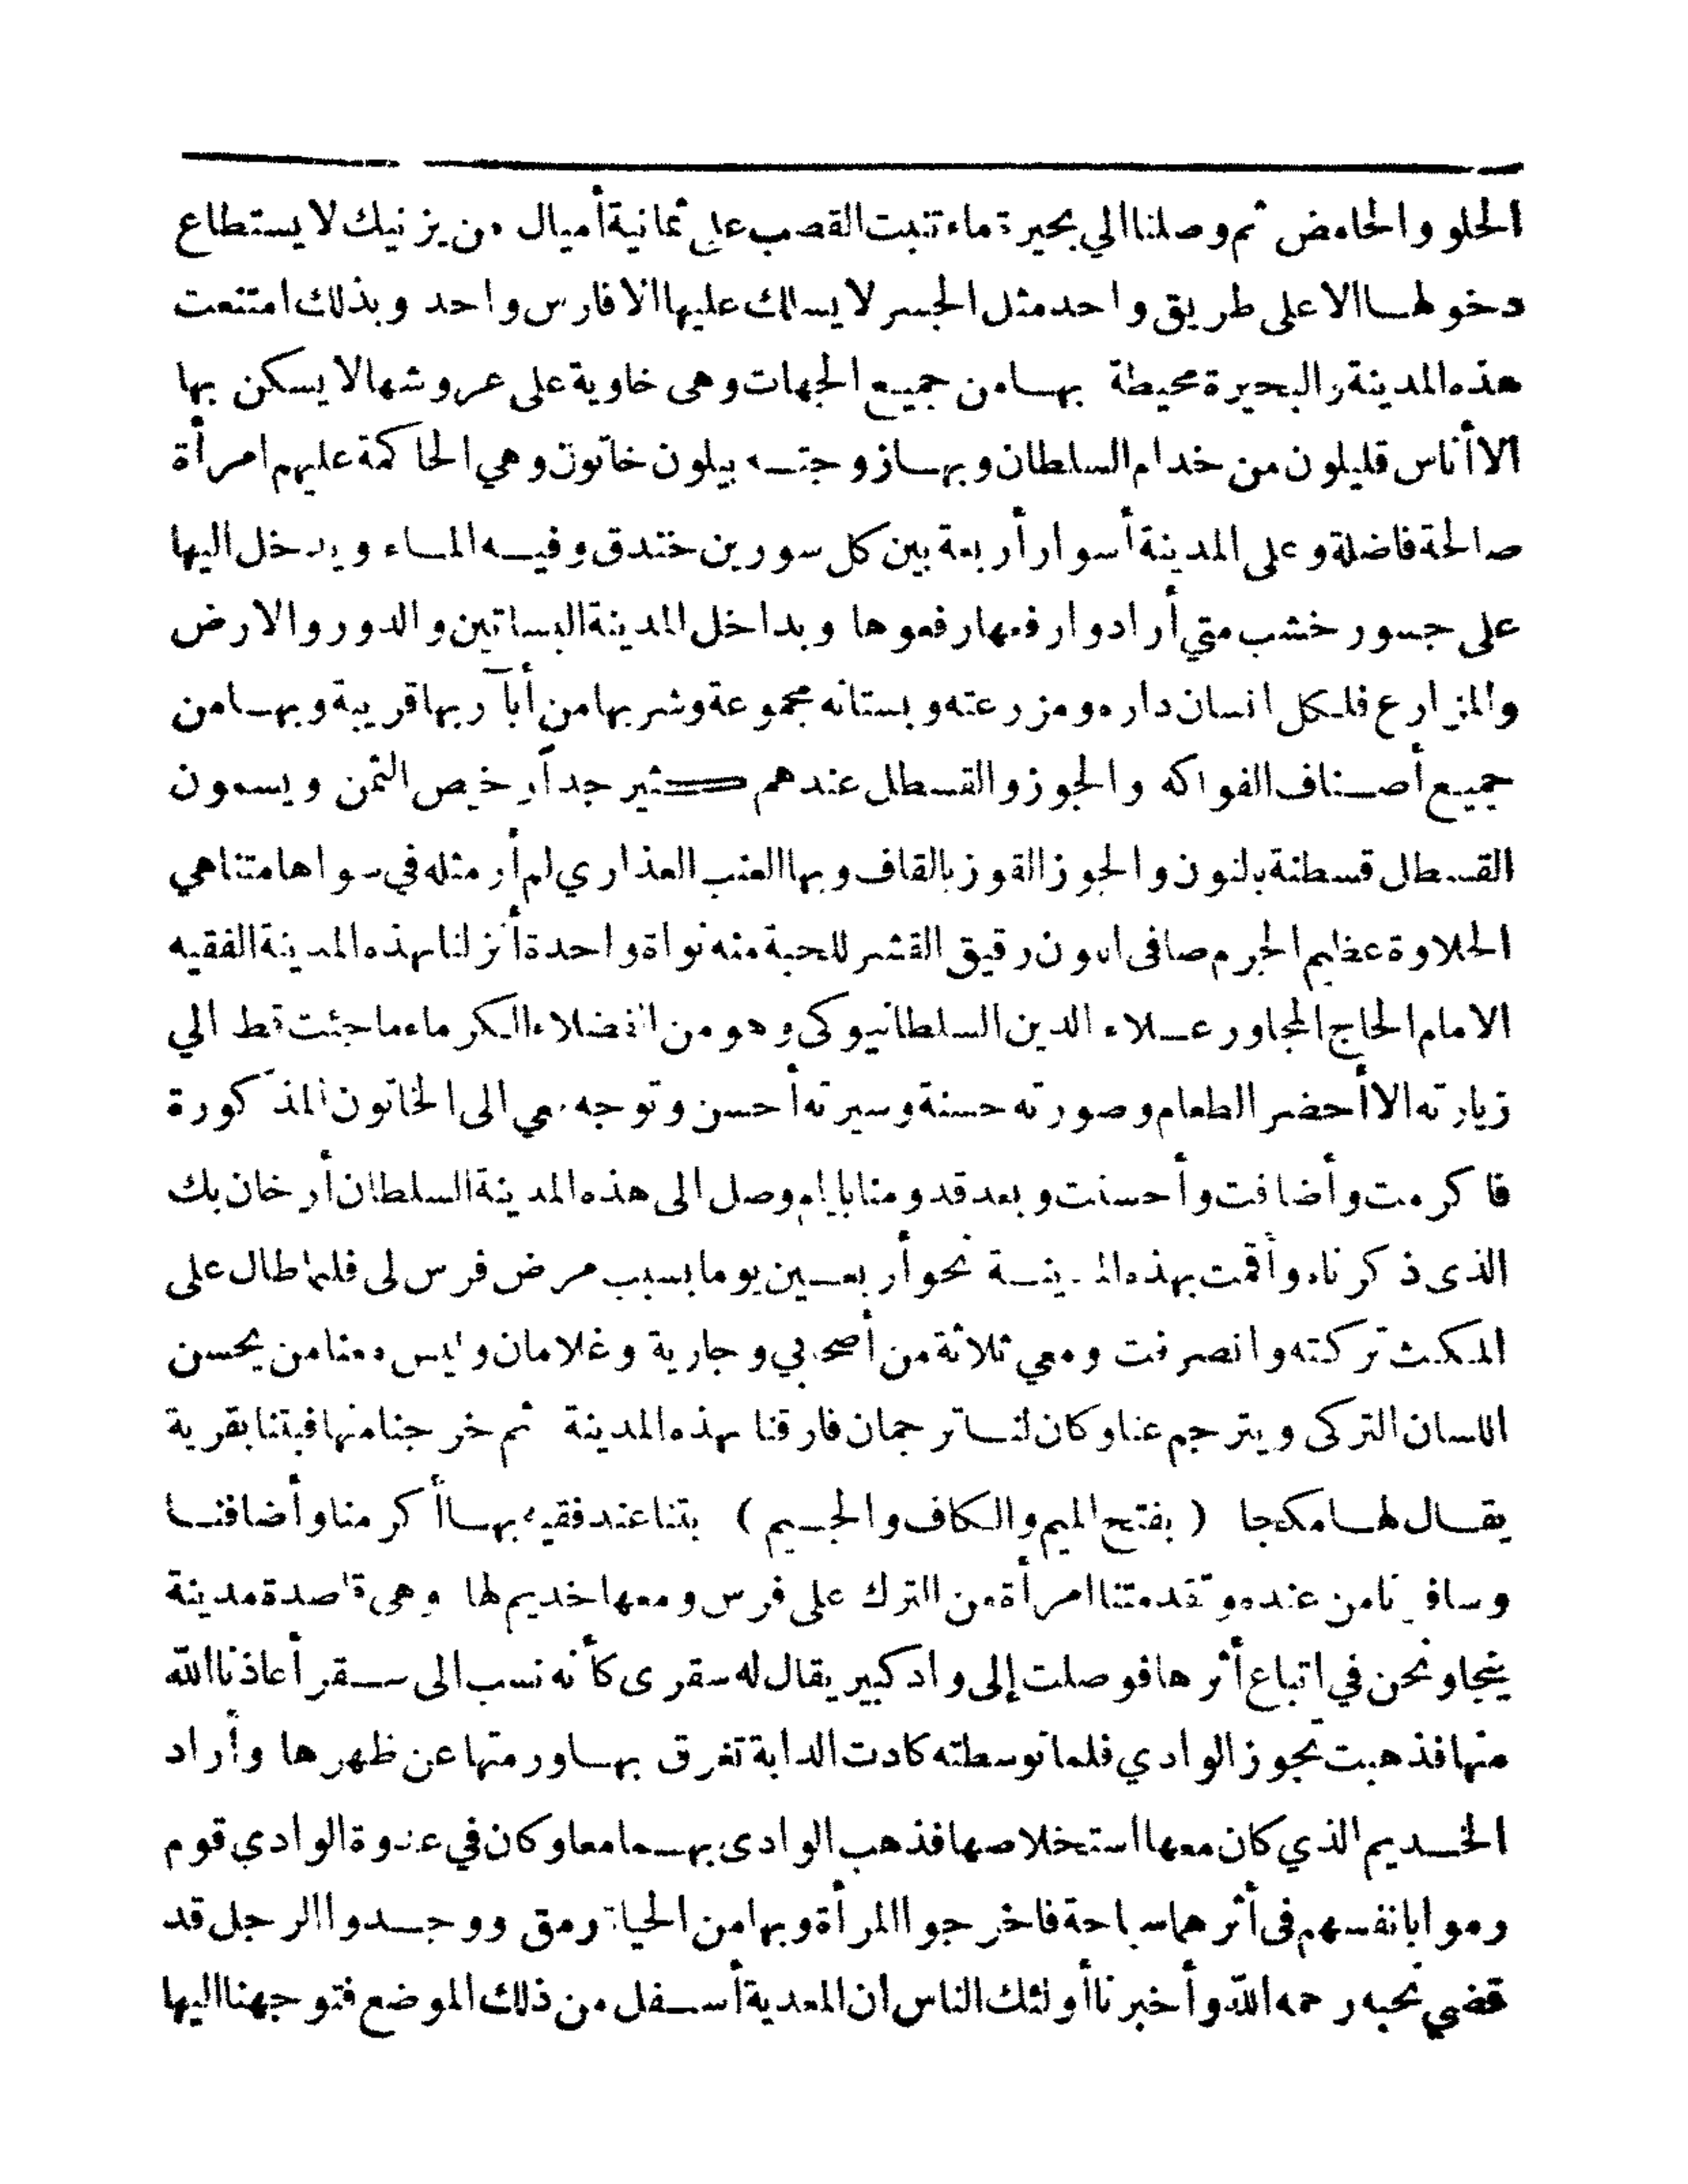 الحلو والحامض ثم وصلنا الي بحيرة ماء تنبت القصب على ثمانية أميال من يزنيك لا يستطاع
دخولها الا على طريق واحد مثل الجسر لا يسلك عليها الا فارس واحد وبذلك امتنعت
هذه المدينة والبحيرة محيطة بها من جميع الجهات وهى خاوية على عروشها لا يسكن بها
الا أناس قليلون من خدام السلطان وبها زوجته بيلون خاتون وهي الحاكمة عليهم امرأة
صالحة فاضلة وعلى المدينة أسوار أربعة بين كل سورين خندق وفيه الماء ويدخل اليها
على جسور خشب متي أرادوا رفعها رفعوها وبداخل المدينة البساتين والدور والارض
والمزارع فلكل انسان داره ومزرعته وبستانه مجموعة وشربها من أبآر بها قريبة وبها من
جميع أصناف الفواكه والجوز والقسطل عندهم كثير جداً رخيص الثمن ويسمون
القسطل قسطنة بالنون والجوز القوز بالقاف وبها العنب العذاري لم أر مثله في سواها متناهي
الحلاوة عظيم الجرم صافى اللون رقيق القشر للحبة منه نواة واحدة أنزلنا بهذه المدينة الفقيه
الامام الحاج المجاور علاء الدين السلطانيوكى وهو من الفضلاء الكرماء ما جئت قط الي
زيارته الا أحضر الطعام وصورته حسنة وسيرته أحسن وتوجه معي الى الخاتون المذكورة
فاكرمت وأضافت وأحسنت وبعد قدومنا بايام وصل الى هذه المدينة السلطان أرخان بك
الذى ذكرناه وأقمت بهذه المدينة نحو أربعين يوما بسبب مرض فرس لى فلما طال على
المكث تركته وانصرفت ومعي ثلاثة من أصحابي وجارية وغلامان وليس معنا من يحسن
اللسان التركى ويترجم عنا وكان لنا ترجمان فارقنا بهذه المدينة ثم خرجنا منها فبتنا بقرية
يقال لها مكجا ( بفتح الميم والكاف والجيم ) بتنا عند فقيه بها أكرمنا وأضافنا
وسافرنا من عنده وتقدمتنا امرأة من الترك على فرس ومعها خديم لها وهى قاصدة مدينة
ينجا ونحن في اتباع أثرها فوصلت إلى واد كبير يقال له سقرى كأنه نسب الى سقر أعاذنا الله
منها فذهبت تجوز الوادي فلما توسطته كادت الدابة تغرق بها ورمتها عن ظهرها وأراد
الخديم الذي كان معها استخلاصها فذهب الوادى بهما معا وكان في عدوة الوادي قوم
رموا بانفسهم فى أثرهما سباحة فاخرجوا المرأة وبها من الحياة رمق ووجدوا الرجل قد
قضي نحبه رحمه الله وأخبرنا أولئك الناس ان المعدية أسفل من ذلك الموضع فتوجهنا اليها